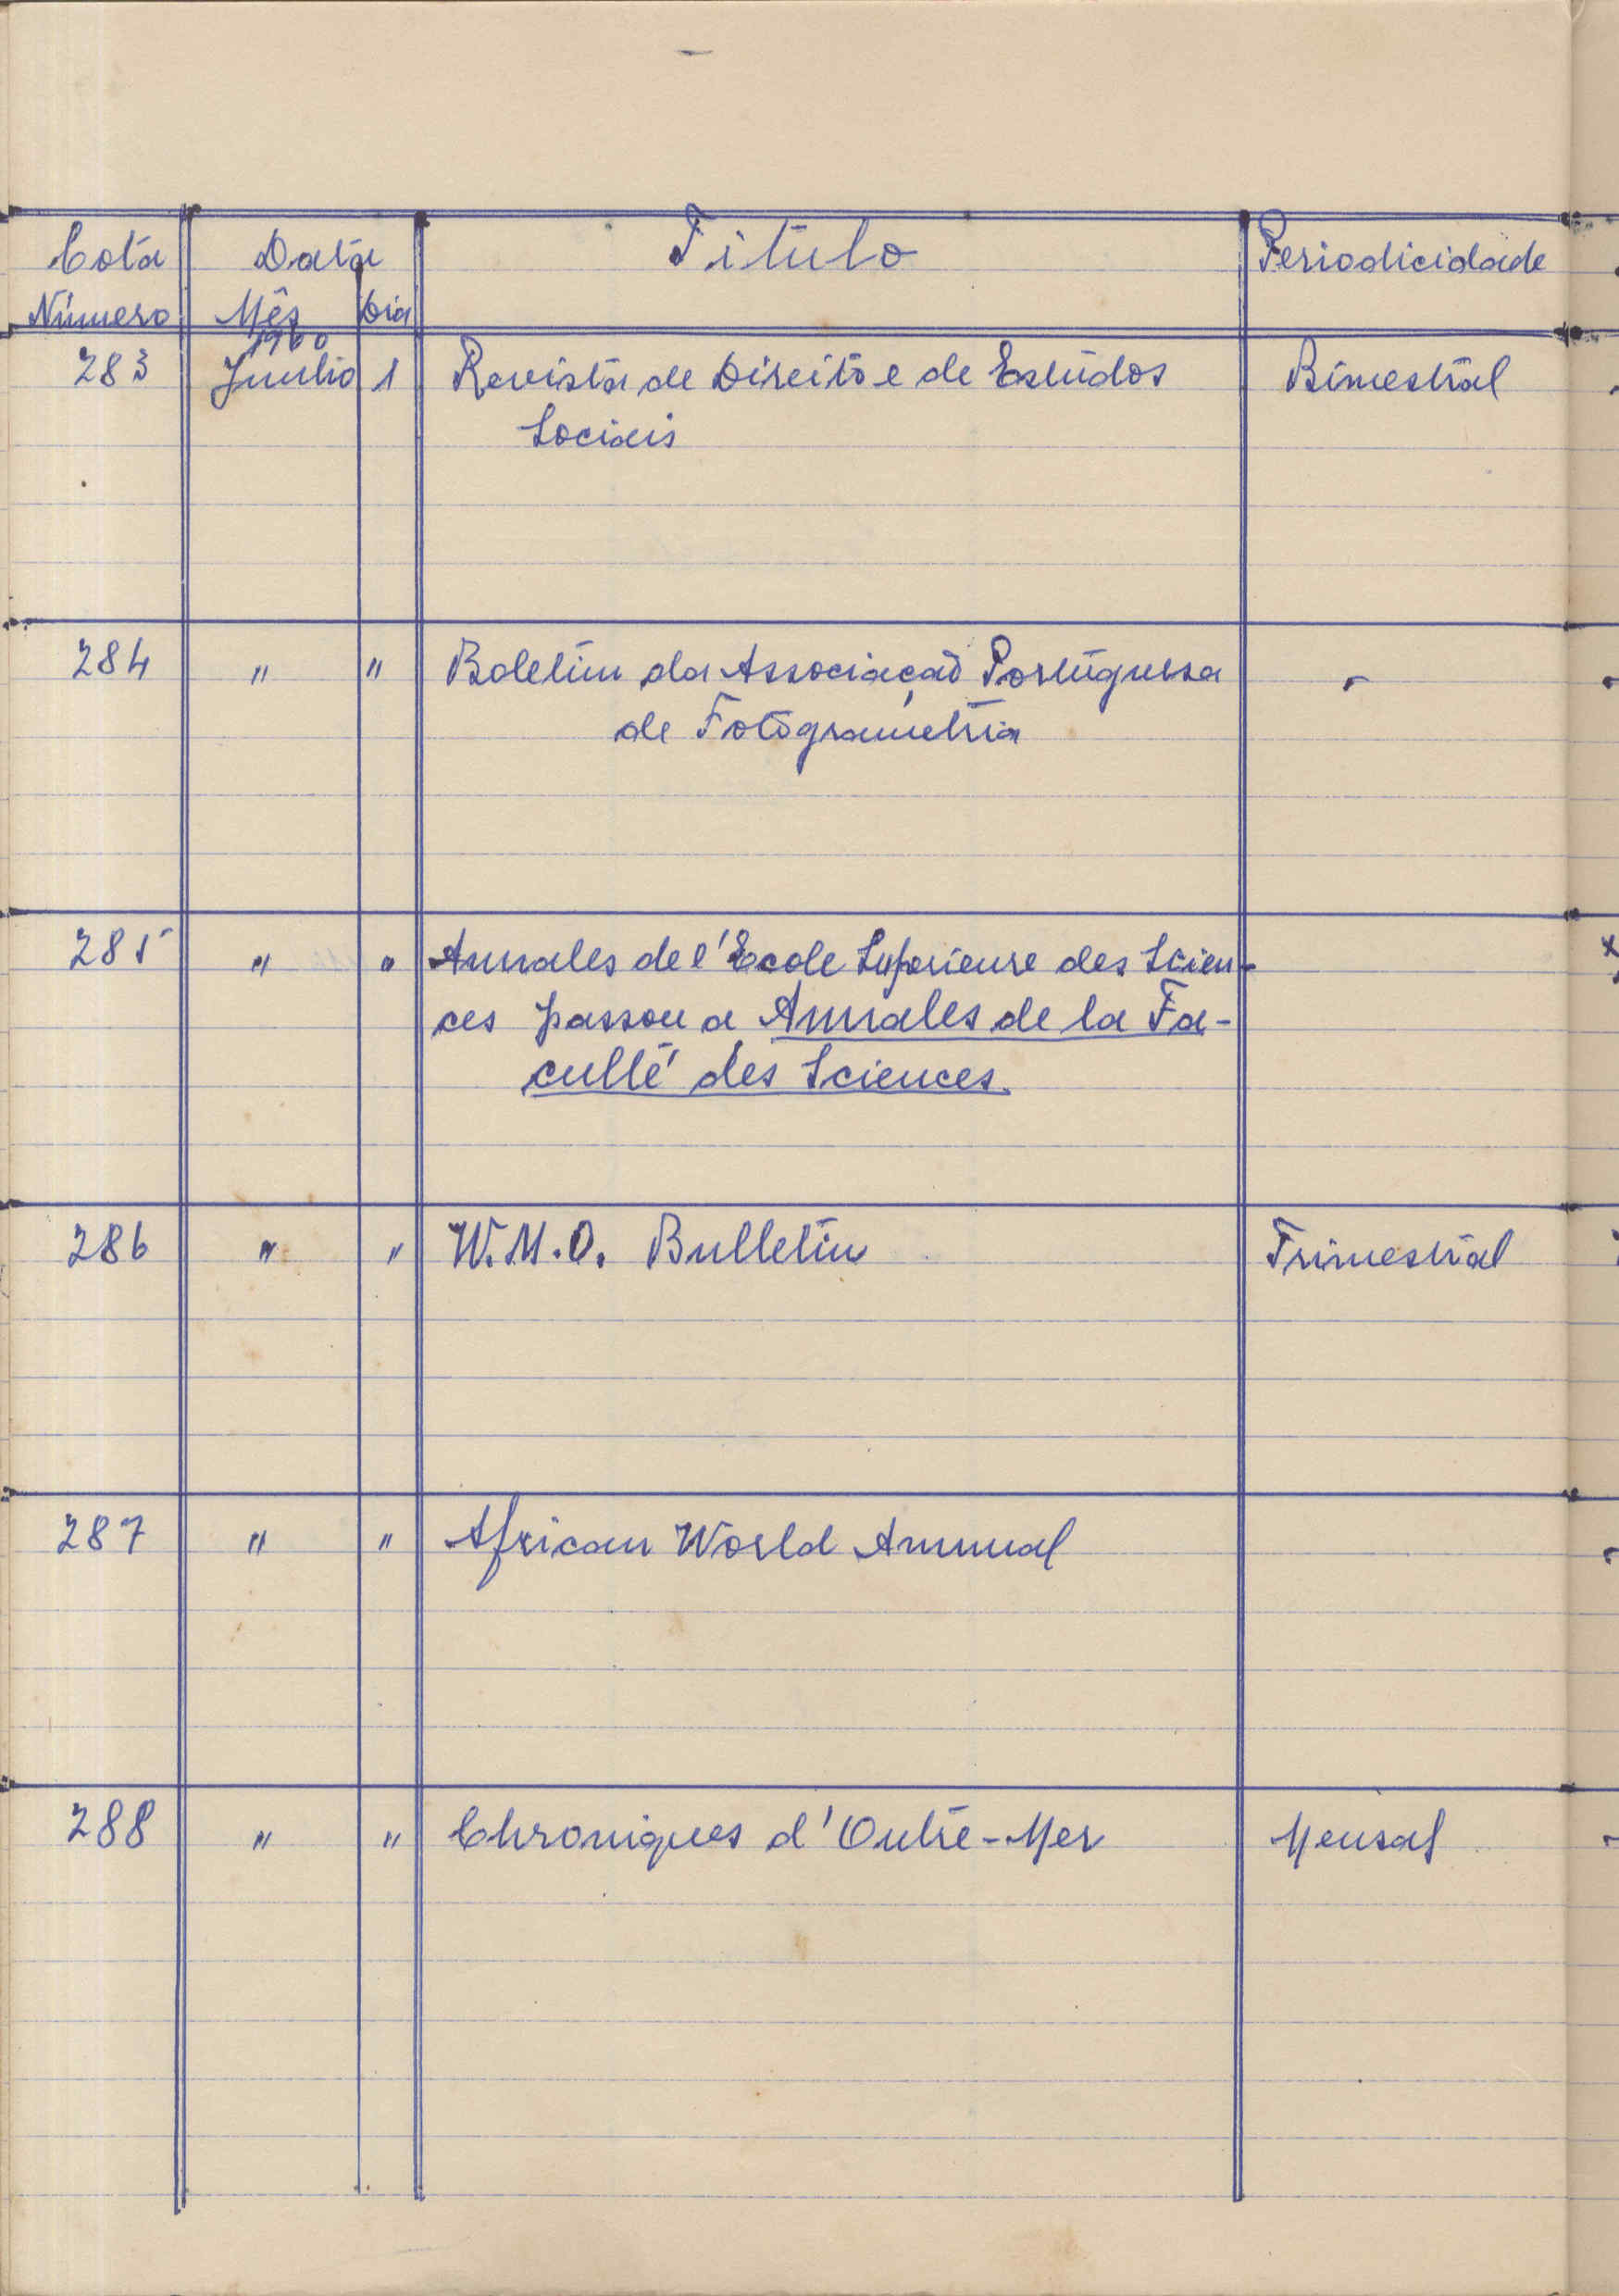 Cota Data Titulo Periodicidade
Número Mês Dia
1960
283 Junho 1 Revista de Direito e de Estudos Bimestral
Sociais
284 " " Boletim da Associação Portuguesa -
de Fotogrametria
285 " " Annales de l'Ecole Superieure des Scien-
ces passou a Annales de la Fa-
culté des Sciences.
286 " " W.M.O. Bulletin Trimestral
287 " " African World Annual
288 " " Chroniques d'Outre-Mer Mensal